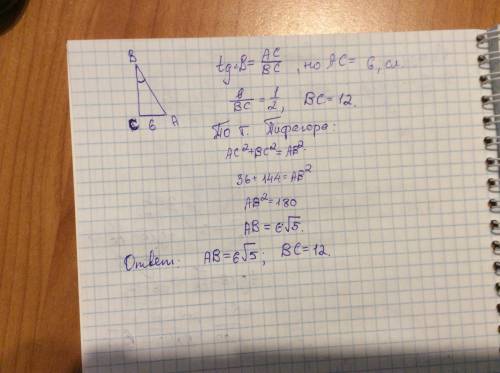 B
C 6 A
tg∠B = AC/BC, но AC = 6, сл.
6/BC = 1/2, BC = 12.
По т. Пифагора:
AC² + BC² = AB².
36 + 144 = AB²
AB² = 180
AB = 6√5.
Ответ. AB = 6√5; BC = 12.